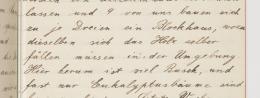 lassen und 9 von uns bauen sich
zu je Dreien ein Blockhaus, wozu
dieselben sich das Holz selber
fällen müssen in der Umgebung
Hier herum ist viel Busch, und
fast nur Eukalyptusbäume sind